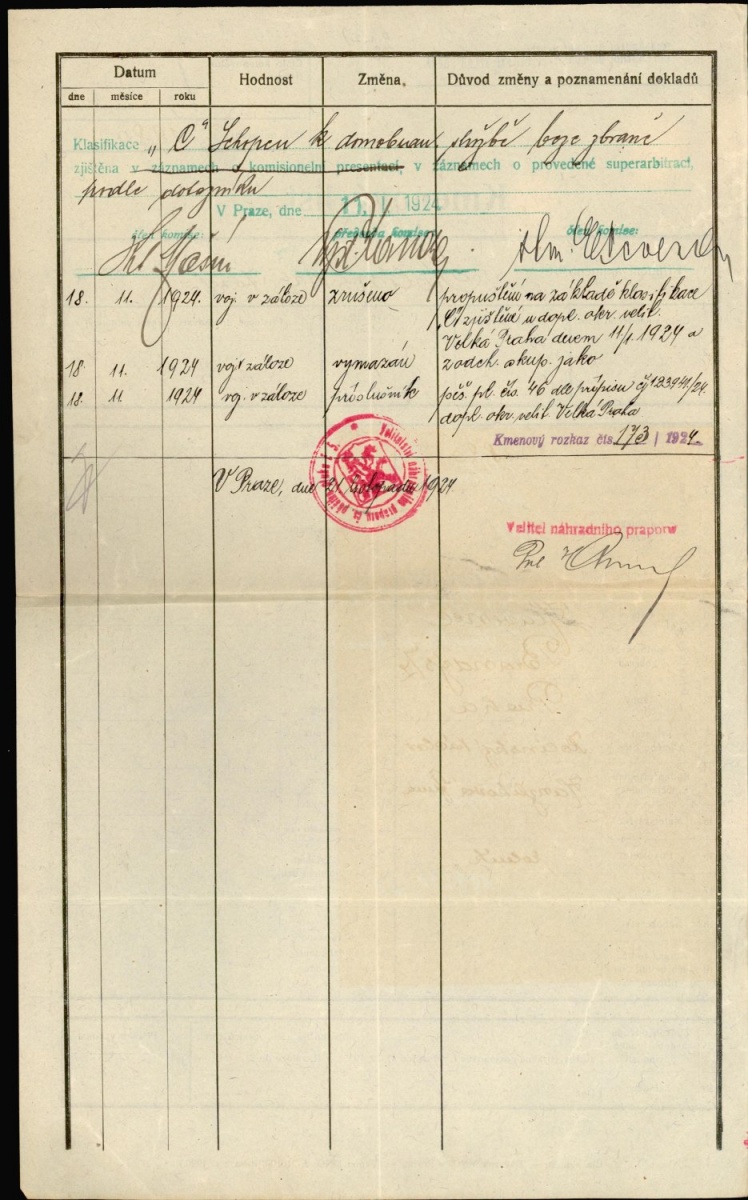 Datum Hodnost Změna. Důvod změny a poznamenání dokladů
dne měsíce roku
Klasifikace „C" Schopen k domobran. službě beze zbraně
zjištěna v záznamech o komisionelní presentaci, v záznamech o provedené superarbitraci,
podle dotazníku
V Praze, dne 11. I. 1924
člen komise: předseda komise člen komise:
18. 11. 1924. voj. v záloze zrušeno propuštění na základě klasifikace
„C" zjištění u dopl. okr. velit.
Velká Praha dnem 11/I. 1924 a
18 11. 1924 voj. v záloze vymazán z odch. skup. jako
18. 11 1924 voj. v záloze příslušník pěš. pl. čís. 46 dle přípisu čj 123941/24.
dopl. okr. velit. Velká Praha
Kmenový rozkaz čís. 173 / 1924
V Praze, dne 21. listopadu 1924
Velitel náhradního praporu